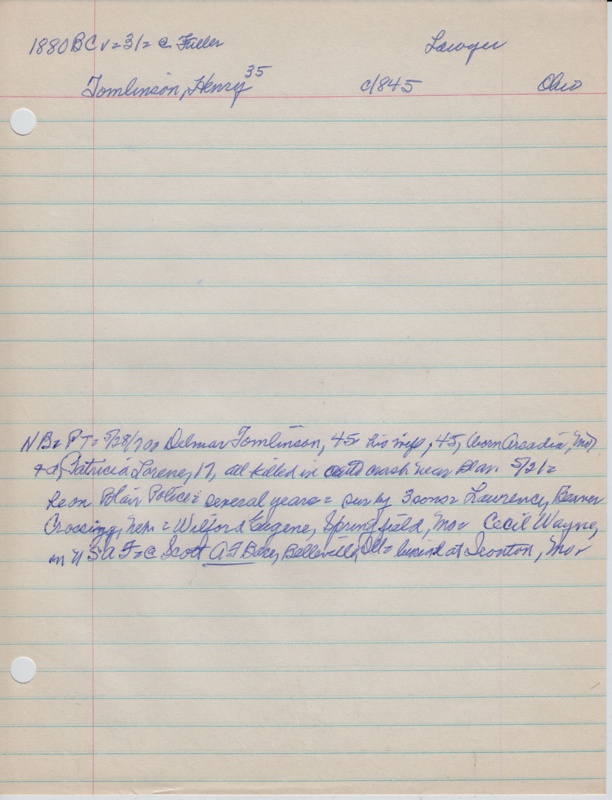 1880 BC v=31= @ Fuller Lawyer
Tomlinson, Henry 35 c/845 Ohio
NB= PT= 5/28/70= Delmar Tomlinson, 45= his wife, 45, born Arcadia, Mo,
& d, Patricia Lorene, 17, all killed in auto crash near Blair 5/21=
he on Blair Police= several years= sur by 3 sons= Lawrence, Beaver
Crossing, Neb= Wilford Eugene, Springfield, Mo= Cecil Wayne,
in USAF=@ Scott AF Base, Belleville, Ill= buried at Ironton, Mo=